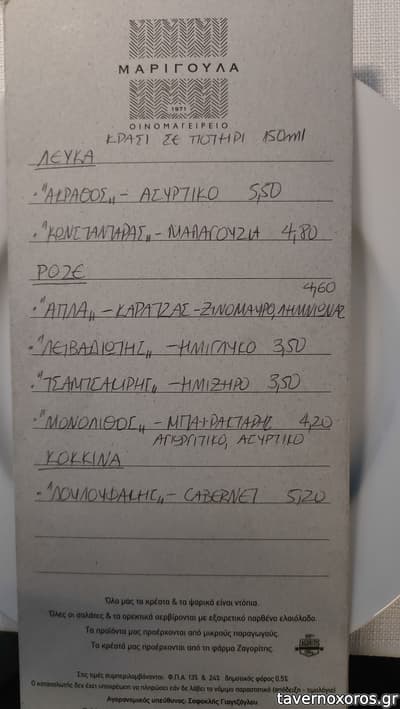 ΜΑΡΙΓΟΥΛΑ
1971
ΟΙΝΟΜΑΓΕΙΡΕΙΟ
ΚΡΑΣΙ ΣΕ ΠΟΤΗΡΙ 150ml
ΛΕΥΚΑ
• "ΑΚΡΑΘΟΣ" – ΑΣΥΡΤΙΚΟ 5,50
• "ΚΩΝΣΤΑΝΤΑΡΑΣ" – ΜΑΛΑΓΟΥΖΙΑ 4,80
ΡΟΖΕ
4,60
• "ΑΠΛΑ" – ΚΑΡΑΤΖΑΣ – ΞΙΝΟΜΑΥΡΟ, ΛΗΜΝΙΩΝΑΣ
• "ΛΕΙΒΑΔΙΩΤΗΣ" – ΗΜΙΓΛΥΚΟ 3,50
• "ΤΣΑΜΠΣΑΚΙΡΗΣ" – ΗΜΙΞΗΡΟ 3,50
• "ΜΟΝΟΛΙΘΟΣ" – ΜΠΑΙΡΑΚΤΑΡΗΣ 4,20
ΑΓΙΩΡΓΙΤΙΚΟ, ΑΣΥΡΤΙΚΟ
ΚΟΚΚΙΝΑ
• "ΛΟΥΛΟΥΦΑΚΗΣ" – CABERNET 5,20
Όλα μας τα κρέατα & τα ψαρικά είναι ντόπια.
Όλες οι σαλάτες & τα ορεκτικά σερβίρονται με εξαιρετικό παρθένο ελαιόλαδο.
Τα προϊόντα μας προέρχονται από μικρούς παραγωγούς.
Τα κρέατά μας προέρχονται από τη φάρμα Ζαγορίτης.
Στις τιμές συμπεριλαμβάνονται: Φ.Π.Α 13% & 24% δημοτικός φόρος 0,5%
Ο καταναλωτής δεν έχει υποχρέωση να πληρώσει εάν δε λάβει το νόμιμο παραστατικό (απόδειξη - τιμολόγιο)
Αγορανομικός υπεύθυνος: Σοφοκλής Γιαγτζόγλου
tavernoxoros.gr